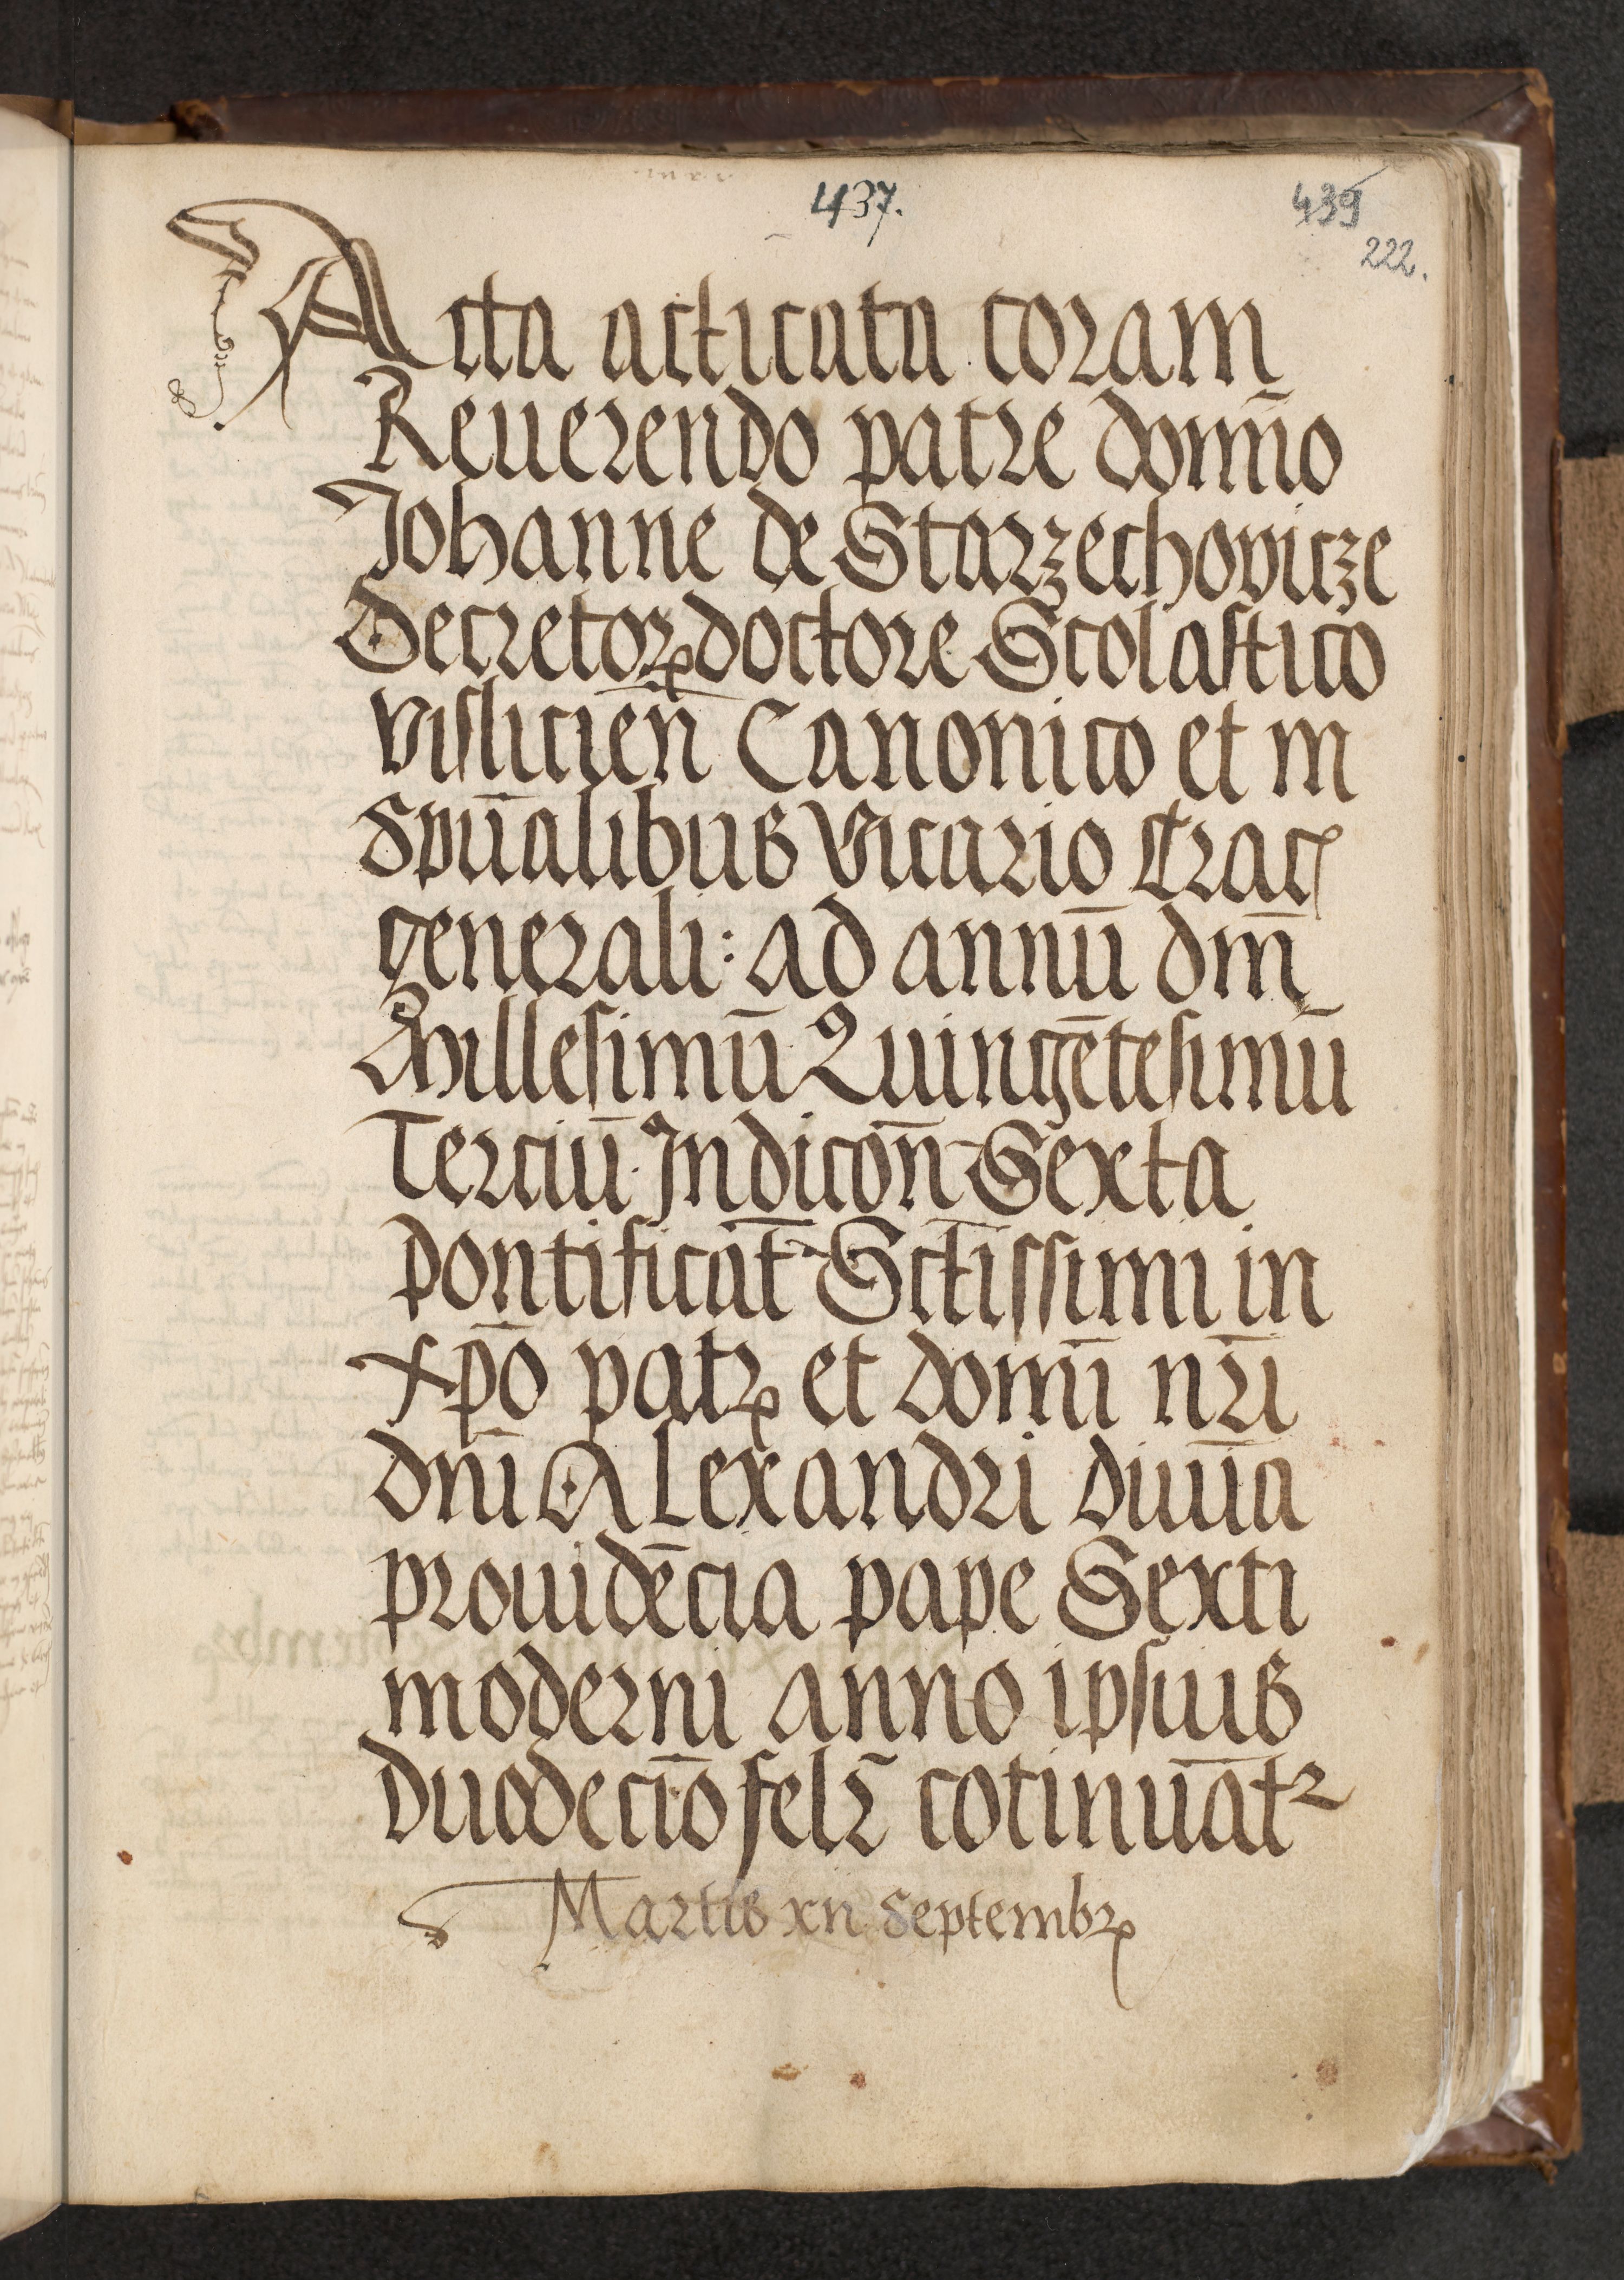 437.
439
222.
Acta acticata coram
Reuerendo patre domĩo
Johanne de Starzechovicze
Decretoꝝ doctore Scolastico
visliciēn Canonico et in
Spūalibus Vicario Crac̄
generali: ad annū dm̄
Millesimū Quingētesimū
Terciū Indicōn Sexta
pontificat̄ Sctīssimi in
xp̄o patꝝ et domī nr̄i
dnī Alexandri diuīa
prouidēcia pape Sexti
moderni anno ipsius
duodecīo felr̄ cotinuāt²
Martis xii Septembꝝ